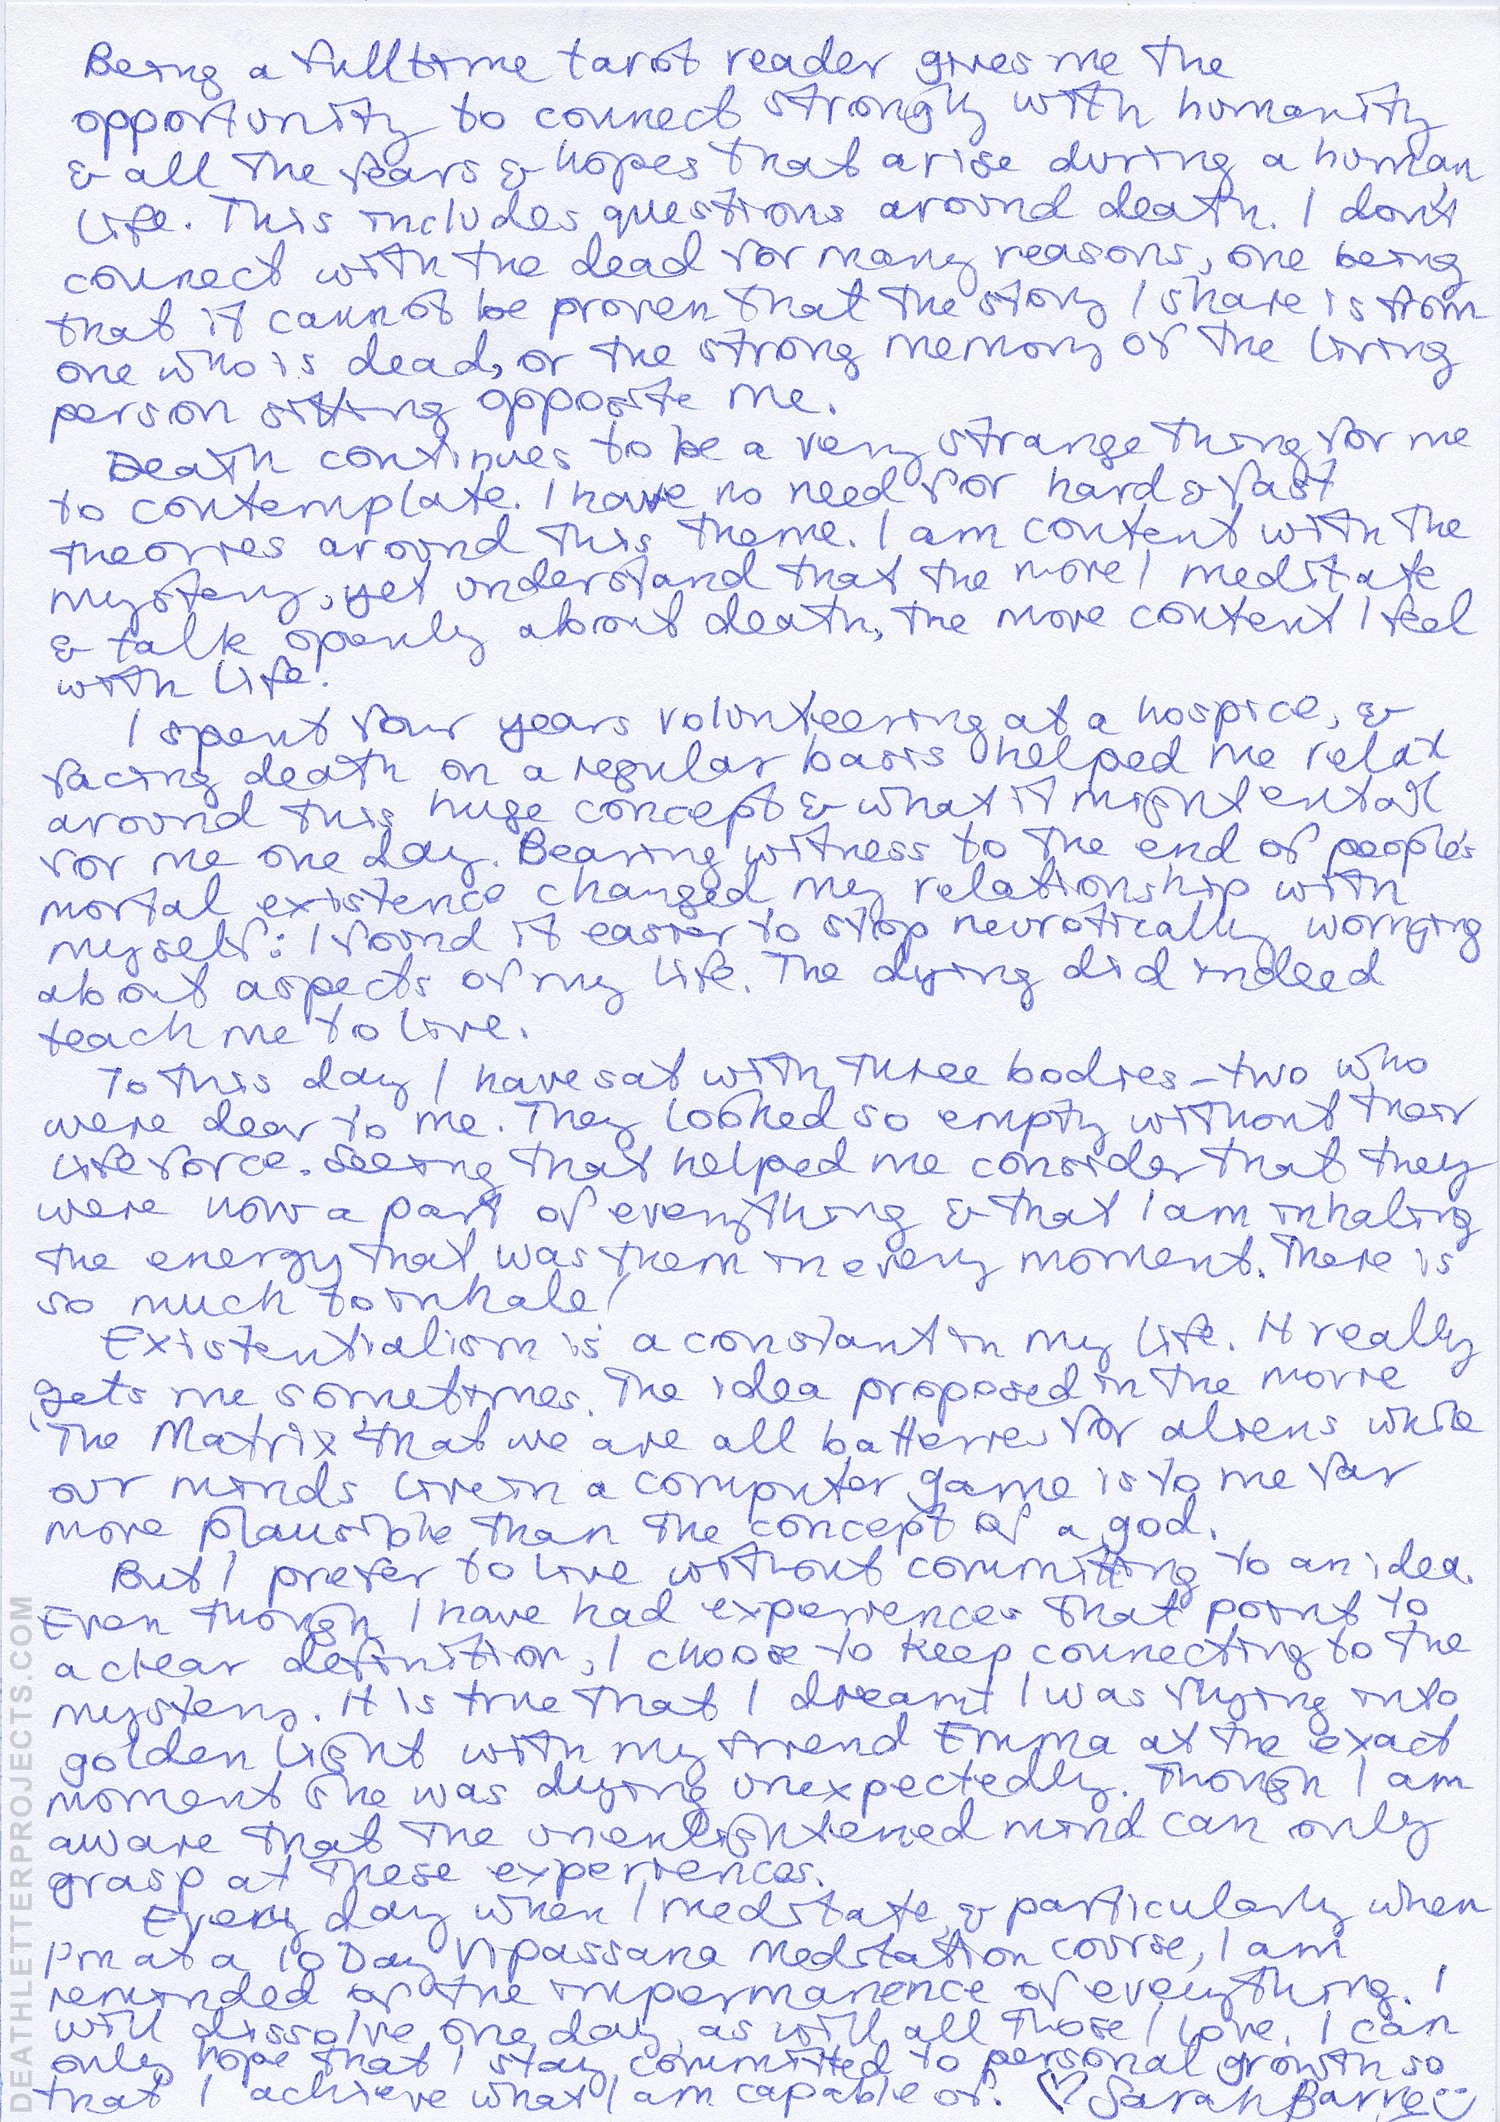 Being a fulltime tarot reader gives me the
opportunity to connect strongly with humanity
& all the fears & hopes that arise during a human
life. This includes questions around death. I don't
connect with the dead for many reasons, one being
that it cannot be proven that the story I share is from
one who is dead, or the strong memory of the living
person sitting opposite me.
Death continues to be a very strange thing for me
to contemplate. I have no need for hard & fast
theories around this theme. I am content with the
mystery, yet understand that the more I meditate
& talk openly about death, the more content I feel
with life.
I spent four years volunteering at a hospice, &
facing death on a regular basis helped me relax
around this huge concept & what it might entail
for me one day. Bearing witness to the end of people's
mortal existence changed my relationship with
myself: I found it easier to stop neurotically worrying
about aspects of my life. The dying did indeed
teach me to live.
To this day I have sat with three bodies - two who
were dear to me. They looked so empty without their
life force. Seeing that helped me consider that they
were now a part of everything & that I am inhaling
the energy that was them in every moment. There is
so much to inhale!
Existentialism is a constant in my life. It really
gets me sometimes. The idea proposed in the movie
'The Matrix' that we are all batteries for aliens while
our minds live in a computer game is to me far
more plausible than the concept of a god.
But I prefer to live without committing to an idea.
Even though I have had experiences that point to
a clear definition, I choose to keep connecting to the
mystery. It is true that I dreamt I was flying into
golden light with my friend Emma at the exact
moment she was dying unexpectedly. Though I am
aware that the unenlightened mind can only
grasp at these experiences.
Every day when I meditate, & particularly when
I'm at a 10 Day Vipassana Meditation course, I am
reminded of the impermanence of everything. I
will dissolve one day, as will all those I love. I can
only hope that I stay committed to personal growth so
that I achieve what I am capable of. ♡ Sarah Barry
DEATHLETTERPROJECTS.COM